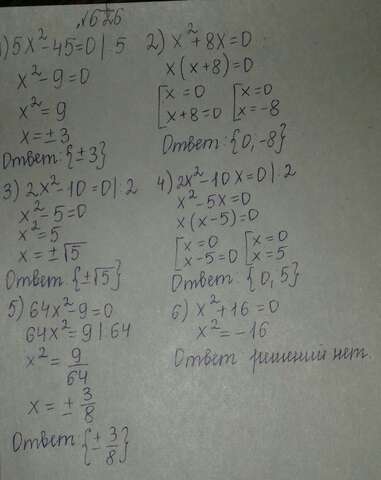 №626
1) 5x²-45=0 | 5
x²-9=0
x²=9
x=±3
Ответ: {±3}
2) x²+8x=0
x(x+8)=0
[x=0 [x=0
x+8=0 x=-8
Ответ: {0,-8}
3) 2x²-10=0 | 2
x²-5=0
x²=5
x=±√5
Ответ: {±√5}
4) 2x²-10x=0 | 2
x²-5x=0
x(x-5)=0
[x=0 [x=0
x-5=0 x=5
Ответ: {0,5}
5) 64x²-9=0
64x²=9 | 64
x²=9/64
x=±3/8
Ответ {±3/8}
6) x²+16=0
x²=-16
Ответ решений нет.